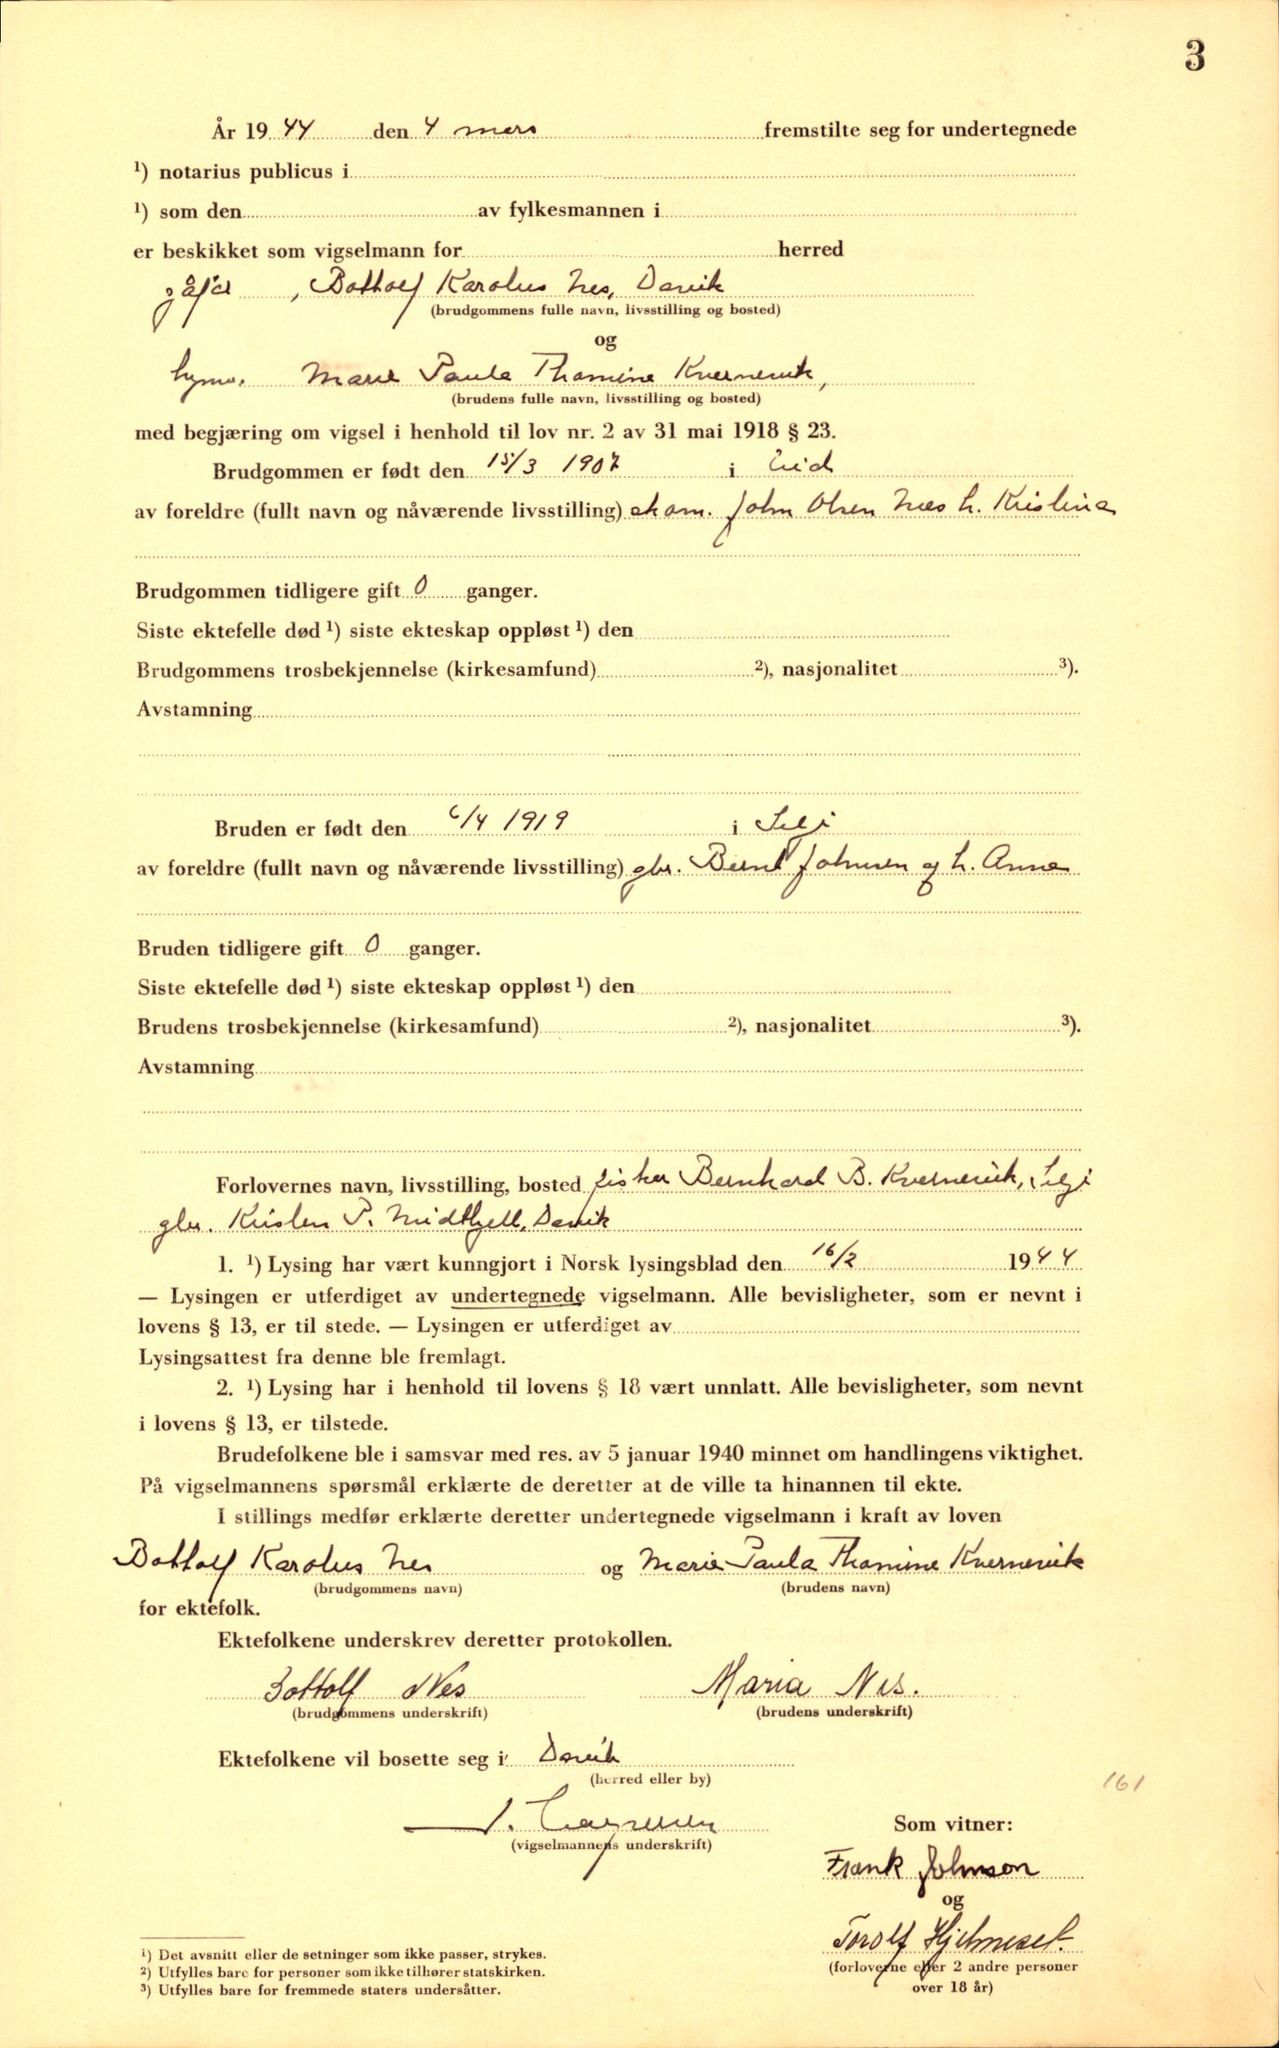 3
År 19 44 den 4 mars fremstilte seg for undertegnede
¹) notarius publicus i
¹) som den av fylkesmannen i
er beskikket som vigselmann for herred
, Bottolf Karolus Nes, Davik
(brudgommens fulle navn, livsstilling og bosted)
og
hymo. Marie Paula Thomine Kvernevik,
(brudens fulle navn, livsstilling og bosted)
med begjæring om vigsel i henhold til lov nr. 2 av 31 mai 1918 § 23.
Brudgommen er født den 15/3 1907 i Eid
av foreldre (fullt navn og nåværende livsstilling) John Olsen Nes h. Kristine
Brudgommen tidligere gift 0 ganger.
Siste ektefelle død ¹) siste ekteskap oppløst ¹) den
Brudgommens trosbekjennelse (kirkesamfund) ²), nasjonalitet ³).
Avstamning
Bruden er født den 6/4 1919 i Selje
av foreldre (fullt navn og nåværende livsstilling) gbr. Bernt Johnsen og h. Anna
Bruden tidligere gift 0 ganger.
Siste ektefelle død ¹) siste ekteskap oppløst ¹) den
Brudens trosbekjennelse (kirkesamfund) ²), nasjonalitet ³).
Avstamning
Forlovernes navn, livsstilling, bosted fisker Bernhard B. Kvernevik, Selje
gbr. Kristen P. Midthjell, Davik
1. ¹) Lysing har vært kunngjort i Norsk lysingsblad den 16/2 1944
— Lysingen er utferdiget av undertegnede vigselmann. Alle bevisligheter, som er nevnt i
lovens § 13, er til stede. — Lysingen er utferdiget av
Lysingsattest fra denne ble fremlagt.
2. ¹) Lysing har i henhold til lovens § 18 vært unnlatt. Alle bevisligheter, som nevnt
i lovens § 13, er tilstede.
Brudefolkene ble i samsvar med res. av 5 januar 1940 minnet om handlingens viktighet.
På vigselmannens spørsmål erklærte de deretter at de ville ta hinannen til ekte.
I stillings medfør erklærte deretter undertegnede vigselmann i kraft av loven
Bottolf Karolus Nes og Marie Paula Thomine Kvernevik
(brudgommens navn) (brudens navn)
for ektefolk.
Ektefolkene underskrev deretter protokollen.
Bottolf Nes Maria Nes.
(brudgommens underskrift) (brudens underskrift)
Ektefolkene vil bosette seg i Davik
(herred eller by)
161
(vigselmannens underskrift)
Som vitner:
Frank Johnson
og
Torolf Hjelmeset.
(forloverne eller 2 andre personer
over 18 år)
¹) Det avsnitt eller de setninger som ikke passer, strykes.
²) Utfylles bare for personer som ikke tilhører statskirken.
³) Utfylles bare for fremmede staters undersåtter.